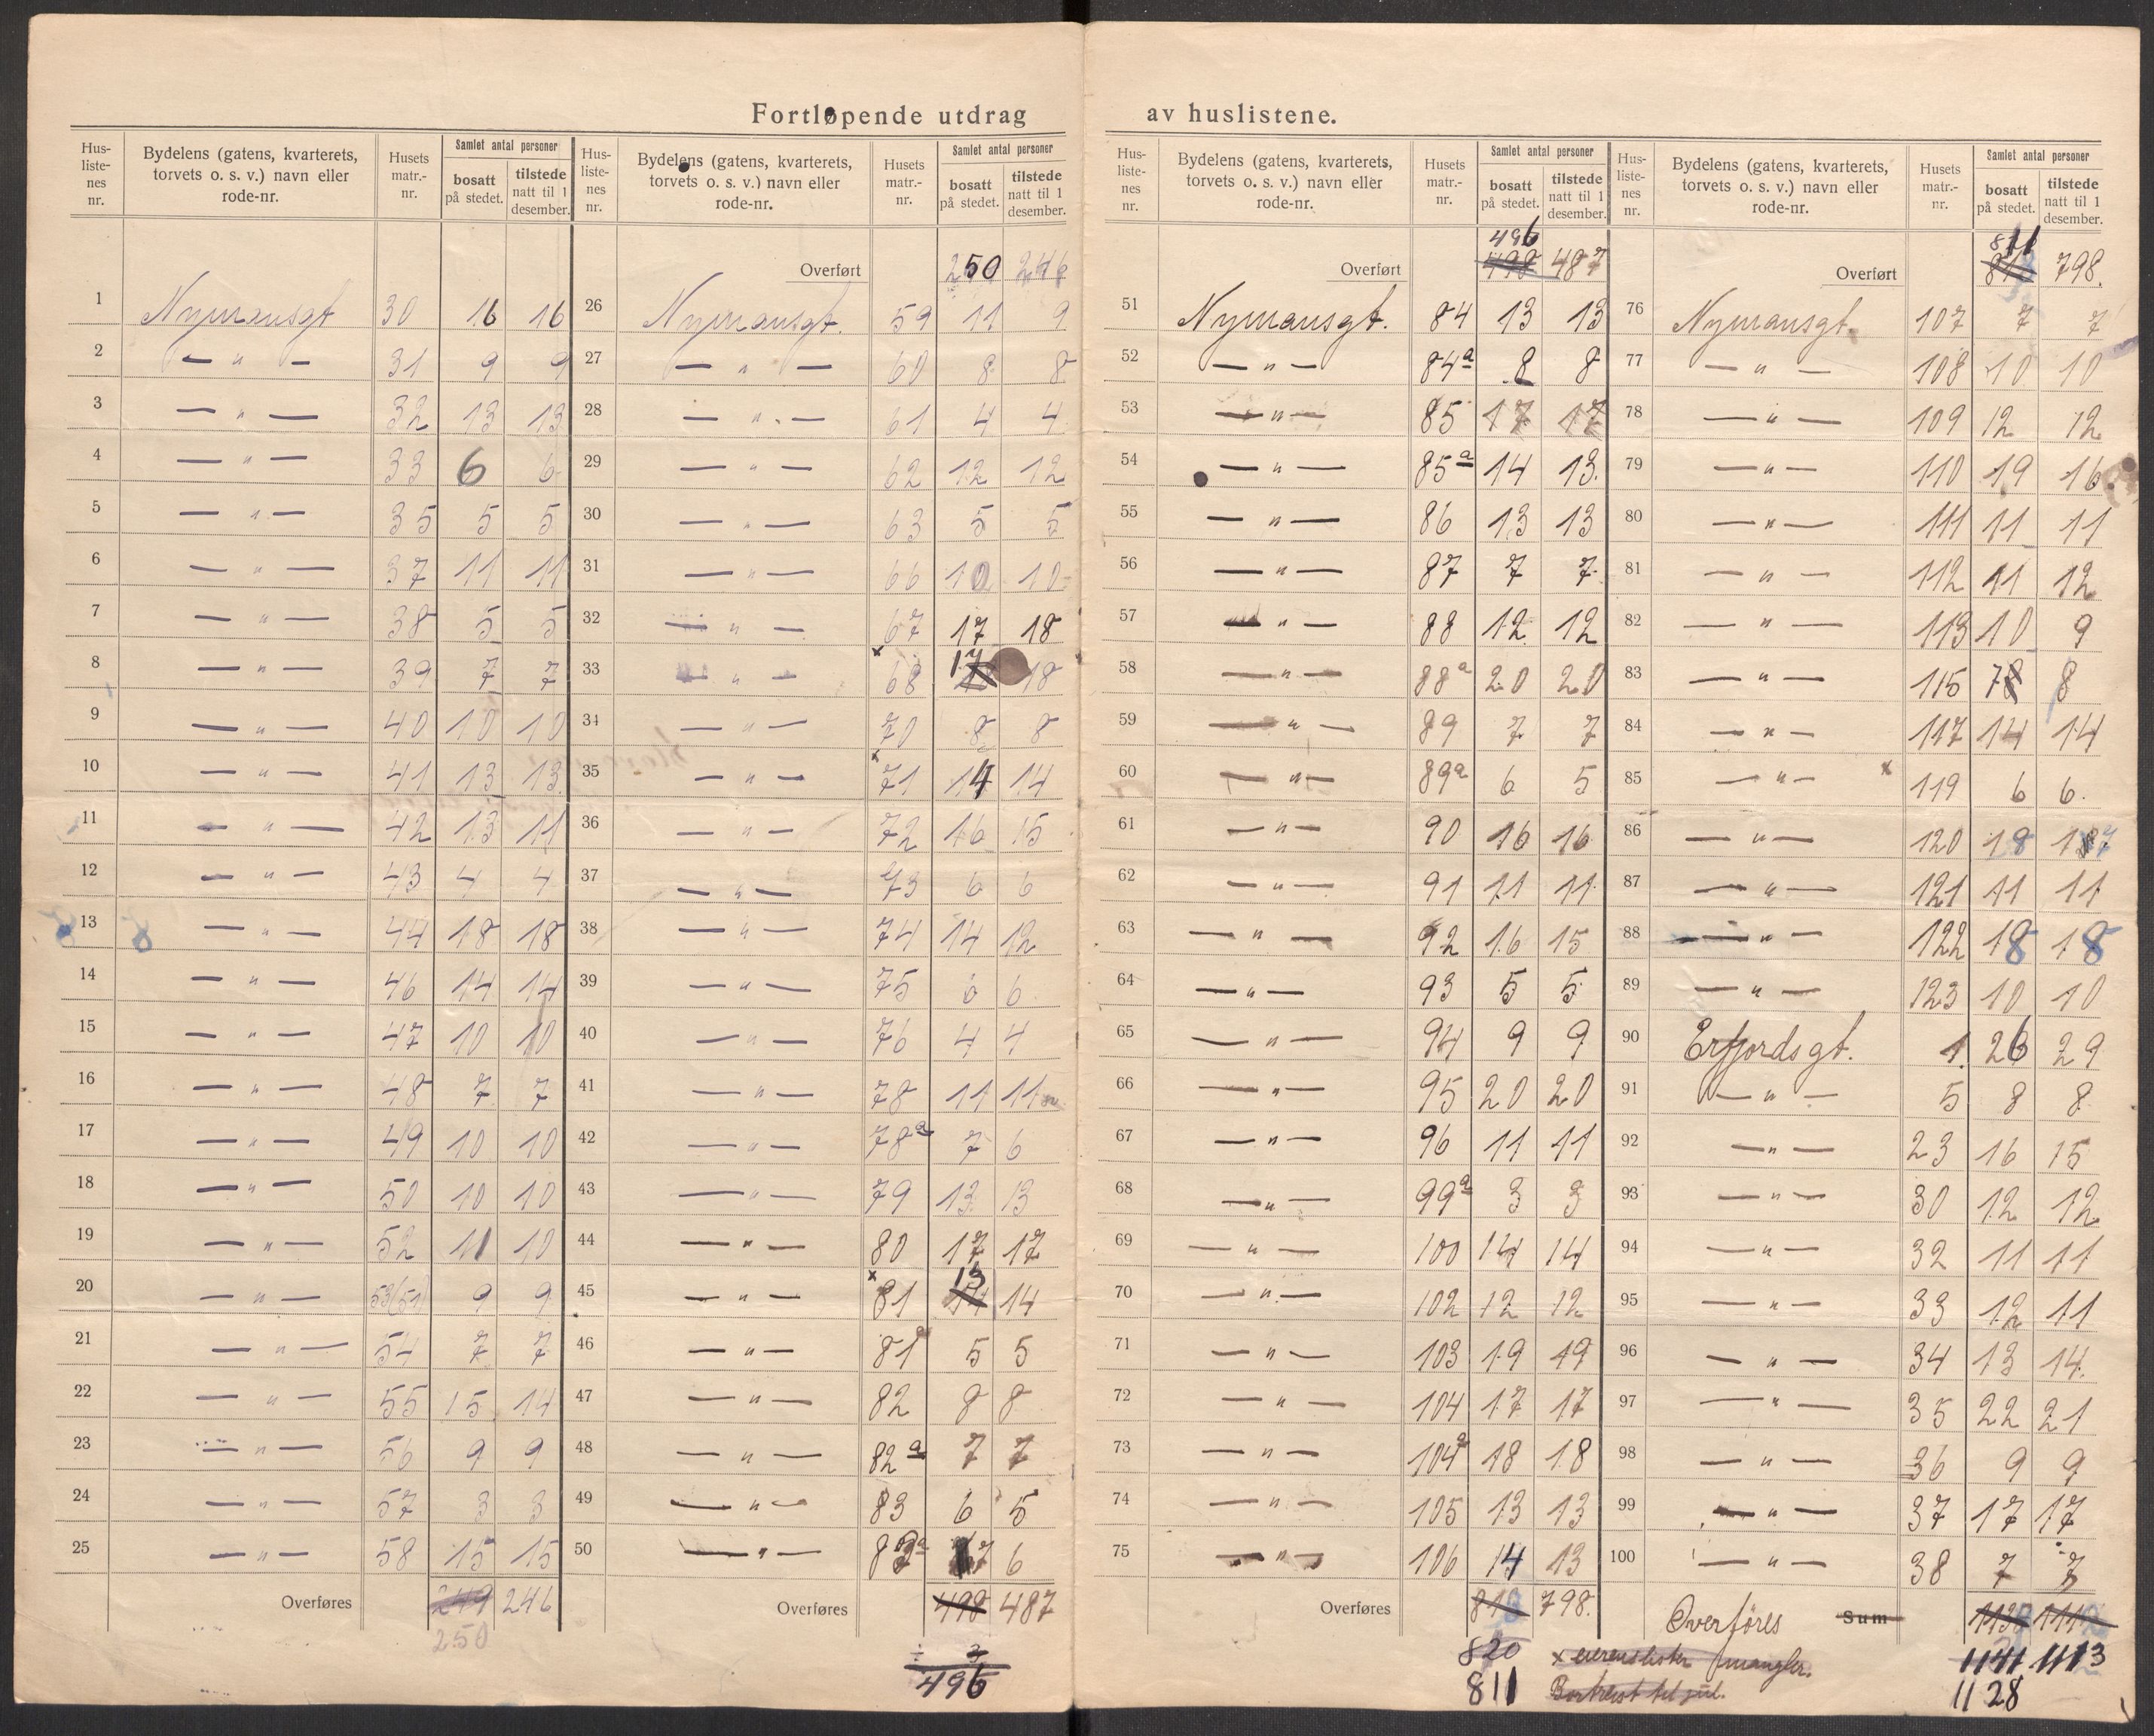 Fortløpende utdrag av huslistene.
Hus-liste-nes nr. Bydelens (gatens, kvarterets, torvets o. s. v.) navn eller rode-nr. Husets matr.-nr. Samlet antal personer bosatt på stedet. tilstede natt til 1 desember.
1 Nymansgt 30 16 16
2 — " — 31 9 9
3 — " — 32 13 13
4 — " — 33 6 6
5 — " — 35 5 5
6 — " — 37 11 11
7 — " — 38 5 5
8 — " — 39 7 7
9 — " — 40 10 10
10 — " — 41 13 13
11 — " — 42 13 11
12 — " — 43 4 4
13 — " — 44 18 18
14 — " — 46 14 14
15 — " — 47 10 10
16 — " — 48 7 7
17 — " — 49 10 10
18 — " — 50 10 10
19 — " — 52 11 10
20 — " — 53(51) 9 9
21 — " — 54 7 7
22 — " — 55 15 14
23 — " — 56 9 9
24 — " — 57 3 3
25 — " — 58 15 15
Overføres 249 246
250
Hus-liste-nes nr. Bydelens (gatens, kvarterets, torvets o. s. v.) navn eller rode-nr. Husets matr.-nr. Samlet antal personer bosatt på stedet. tilstede natt til 1 desember.
Overført 250 246
26 Nymansgt. 59 11 9
27 — " — 60 8 8
28 — " — 61 4 4
29 — " — 62 12 12
30 — " — 63 5 5
31 — " — 66 10 10
32 — " — 67 17 18
33 — " — x 68 17 18
34 — " — 70 8 8
35 — " — x 71 14 14
36 — " — 72 16 15
37 — " — 73 6 6
38 — " — 74 14 12
39 — " — 75 6 6
40 — " — 76 4 4
41 — " — 78 11 11
42 — " — 78a 7 6
43 — " — 79 13 13
44 — " — 80 17 17
45 — " — x 81 13 14
46 — " — 81a 5 5
47 — " — 82 8 8
48 — " — 82a 7 7
49 — " — 83 6 5
50 — " — 83a 7 6
Overføres 498 487
496
Hus-liste-nes nr. Bydelens (gatens, kvarterets, torvets o. s. v.) navn eller rode-nr. Husets matr.-nr. Samlet antal personer bosatt på stedet. tilstede natt til 1 desember.
496
Overført 498 487
51 Nymansgt. 84 13 13
52 — " — 84a 8 8
53 — " — 85 17 17
54 — " — 85a 14 13
55 — " — 86 13 13
56 — " — 87 7 7
57 — " — 88 12 12
58 — " — 88a 20 20
59 — " — 89 7 7
60 — " — 89a 6 5
61 — " — 90 16 16
62 — " — 91 11 11
63 — " — 92 16 15
64 — " — 93 5 5
65 — " — 94 9 9
66 — " — 95 20 20
67 — " — 96 11 11
68 — " — 99a 3 3
69 — " — 100 14 14
70 — " — 102 12 12
71 — " — 103 19 19
72 — " — 104 17 17
73 — " — 104a 18 18
74 — " — 105 13 13
75 — " — 106 14 13
Overføres 798.
820
811
x eierens lister mangler.
Bortreist til jul.
Hus-liste-nes nr. Bydelens (gatens, kvarterets, torvets o. s. v.) navn eller rode-nr. Husets matr.-nr. Samlet antal personer bosatt på stedet. tilstede natt til 1 desember.
811
Overført 798.
76 Nymansgt. 107 7 7
77 — " — 108 10 10
78 — " — 109 12 12
79 — " — 110 19 16
80 — " — 111 11 11
81 — " — 112 11 12
82 — " — 113 10 9
83 — " — 115 7 8
84 — " — 117 14 14
85 — " — x 119 6 6.
86 — " — 120 18 17
87 — " — 121 11 11
88 — " — 122 18 18
89 — " — 123 10 10
90 Erfjordsgt. 1. 26 29
91 — " — 5 8 8
92 — " — 23 16 15
93 — " — 30 12 12
94 — " — 32 11 11
95 — " — 33 12 11
96 — " — 34 13 14.
97 — " — 35 22 21
98 — " — 36 9 9
99 — " — 37 17 17
100 — " — 38 7 7
Overføres Sum
1141 1113
1128